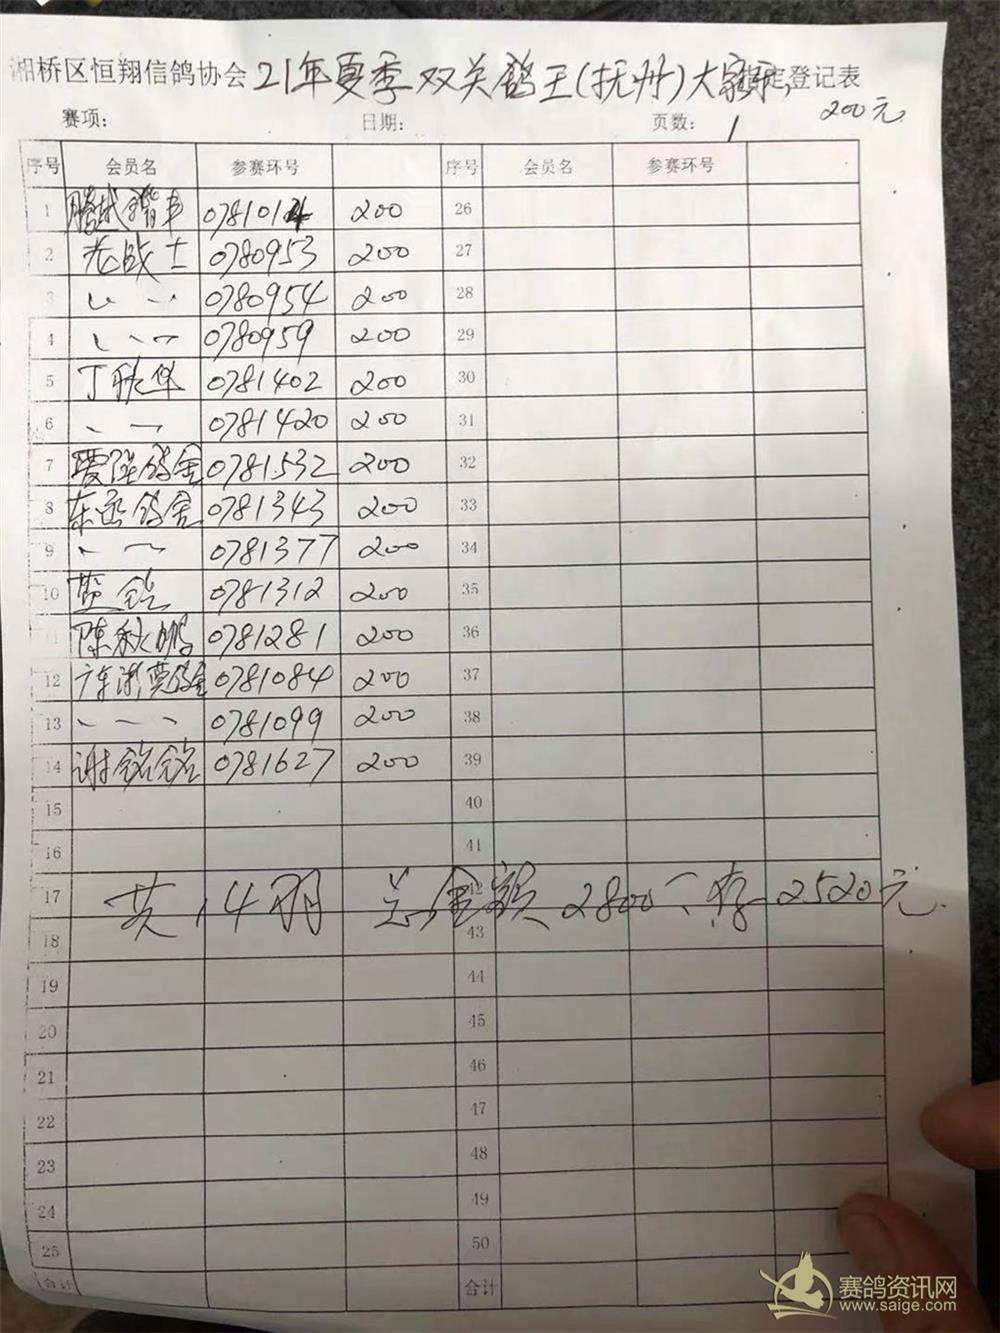 湘桥区恒翔信鸽协会 21年夏季双关鸽王(抚州)大 指定登记表
200元
赛项: 日期: 页数: 1
序号 会员名 参赛环号 序号 会员名 参赛环号
1 0781014 200 26
2 龙战士 0780953 200 27
3 〃 0780954 200 28
4 〃 0780959 200 29
5 丁 华 0781402 200 30
6 〃 0781420 200 31
7 鸽舍 0781532 200 32
8 东 鸽舍 0781343 200 33
9 〃 0781377 200 34
10 0781312 200 35
11 陈秋鹏 0781281 200 36
12 鸽舍 0781084 200 37
13 〃 0781099 200 38
14 谢铭铭 0781627 200 39
15 40
16 41
17 42
共14羽 总金额2800 存2520元
18 43
19 44
20 45
21 46
22 47
23 48
24 49
25 50
合计 合计
赛鸽资讯网
www.saige.com